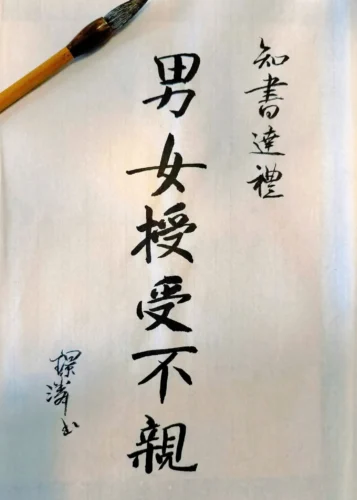 知書達禮
男女授受不親
書